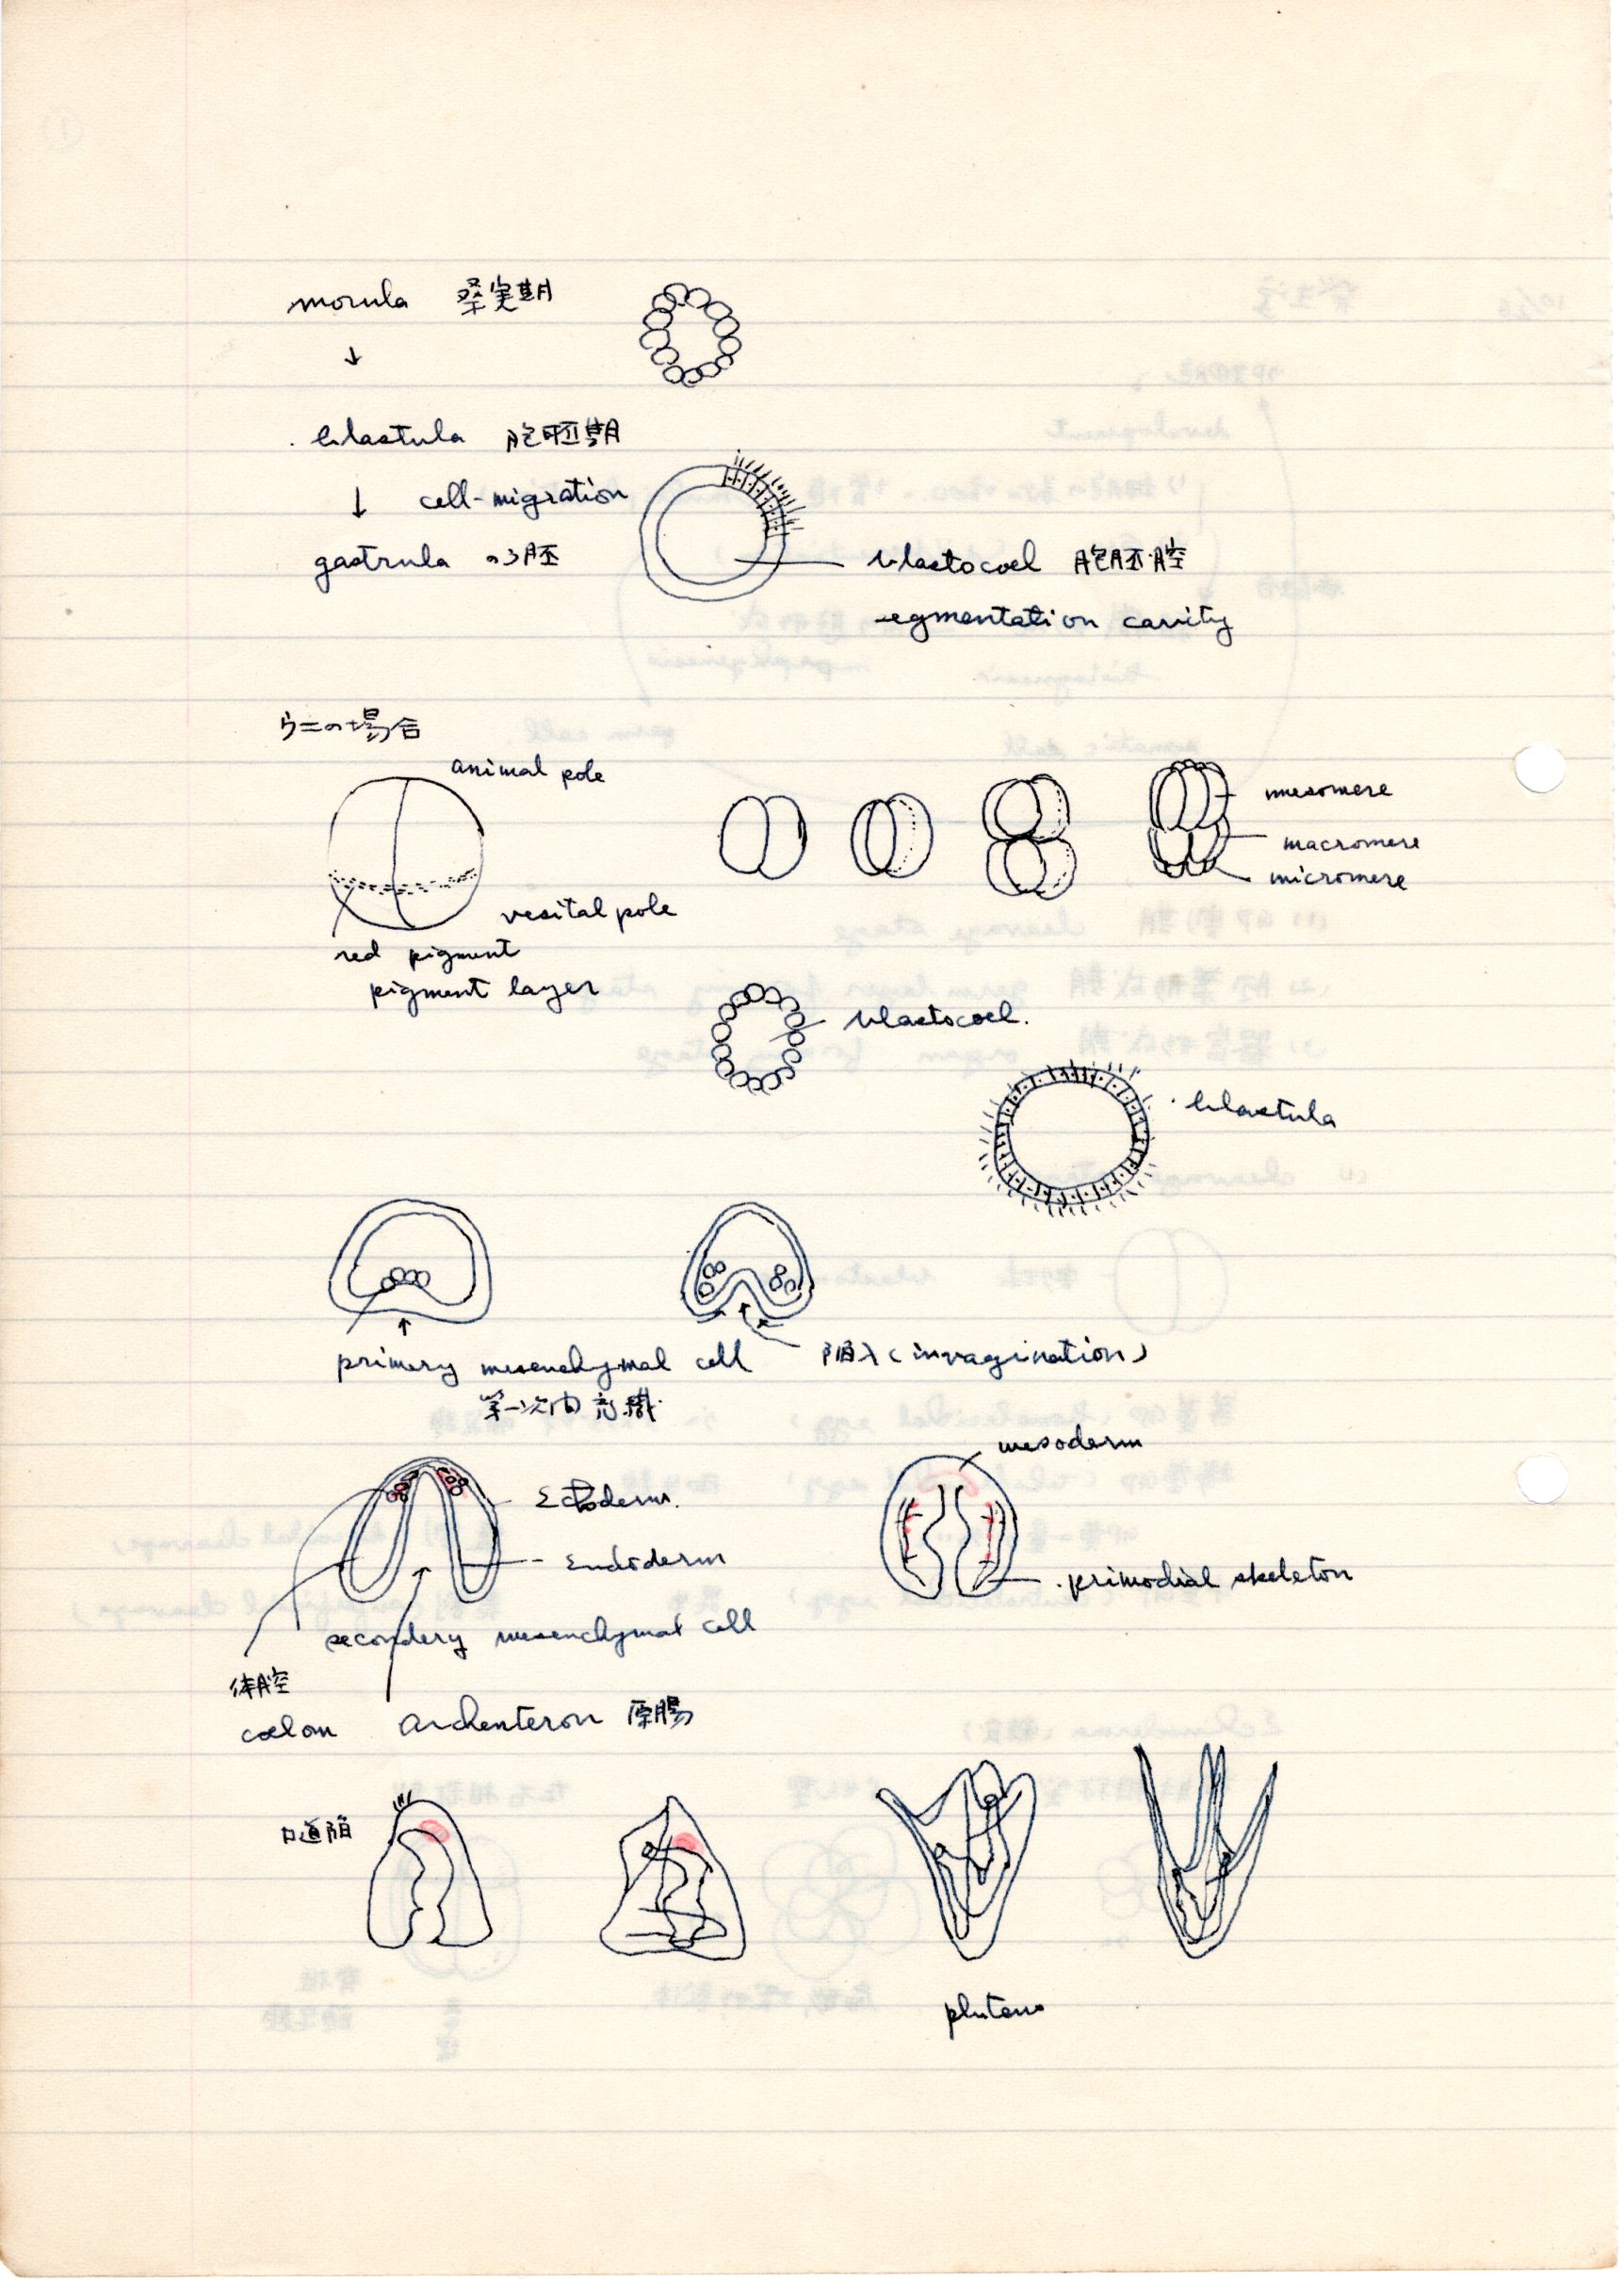 morula 桑実期
↓
blastula 胞胚期
↓ cell-migration
gastrula のう胚
blastocoel 胞胚腔
segmentation cavity
ウニの場合
animal pole
mesomere
macromere
micromere
vesital pole
red pigment
pigment layer
blastocoel.
blastula
primery mesenchymal cell
陥入 (invagination)
第一次間充織
mesoderm
Ectoderm.
Endoderm
primodial skeleton
secondery mesenchymal cell
体腔
coelom
archenteron 原腸
口道陥
pluteus